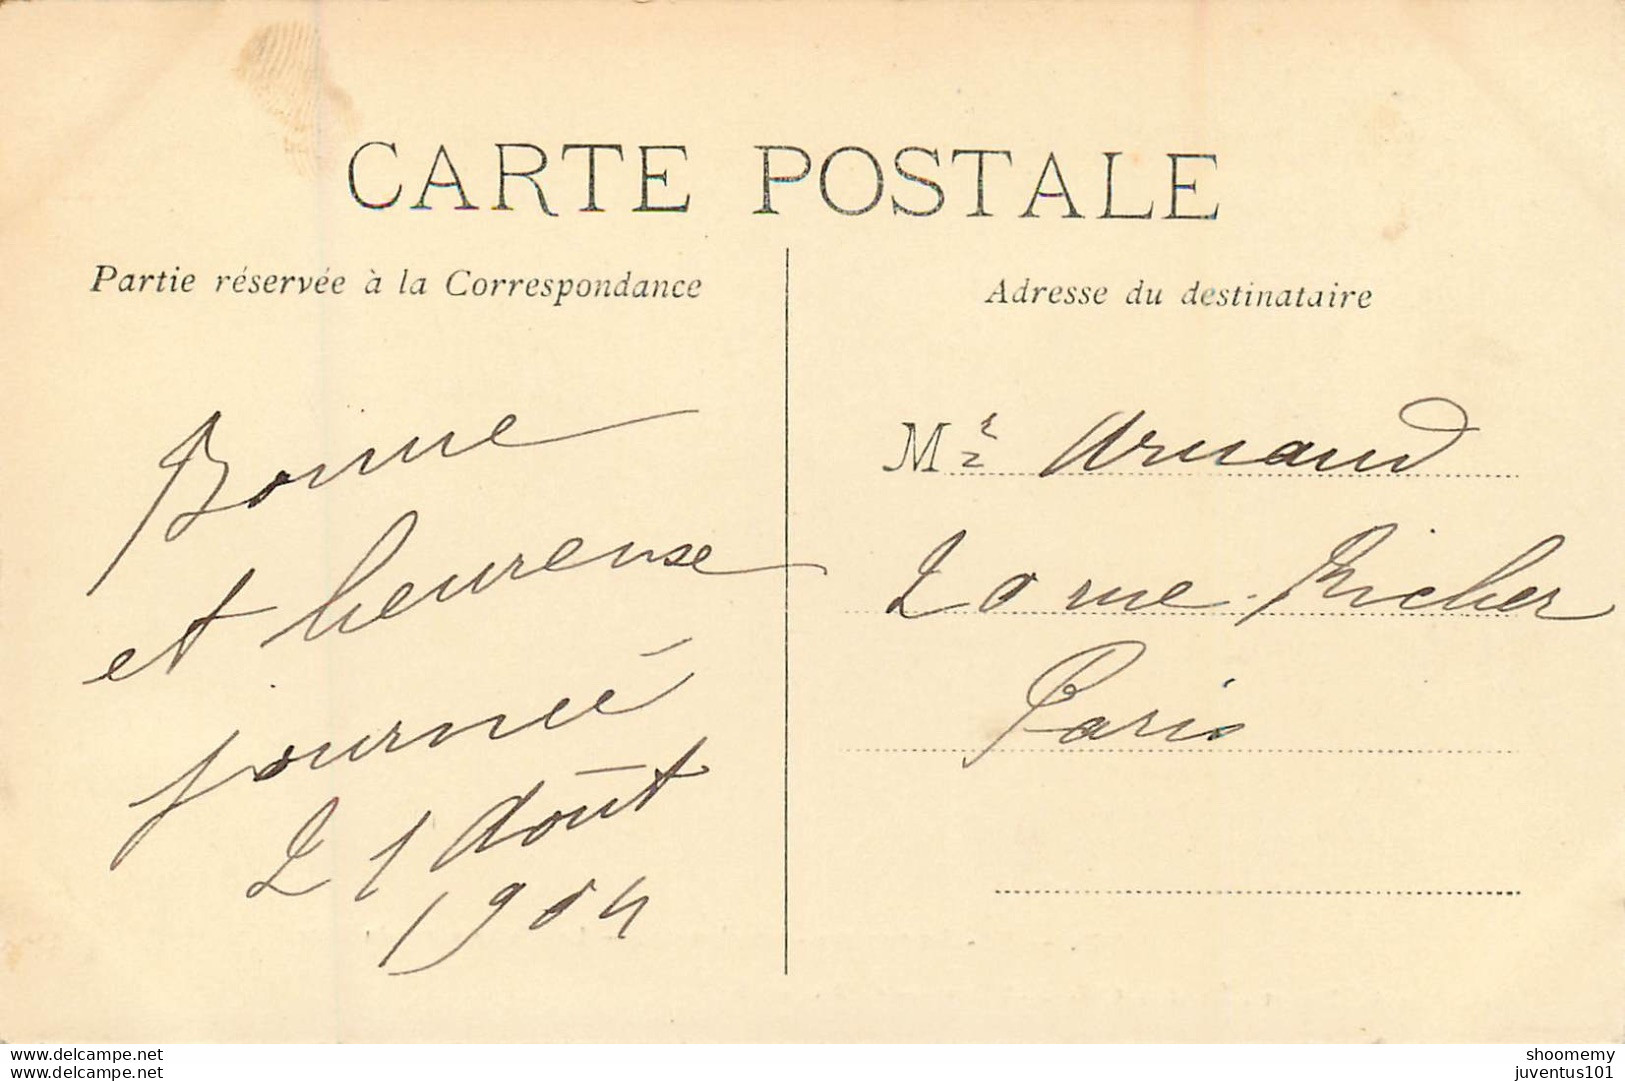 CARTE POSTALE
Partie réservée à la Correspondance
Bonne
et heureuse
journée
21 Août
1904
Adresse du destinataire
Mr Arnaud
20 rue Richer
Paris
www.delcampe.net
www.delcampe.net
shoomemy
juventus101